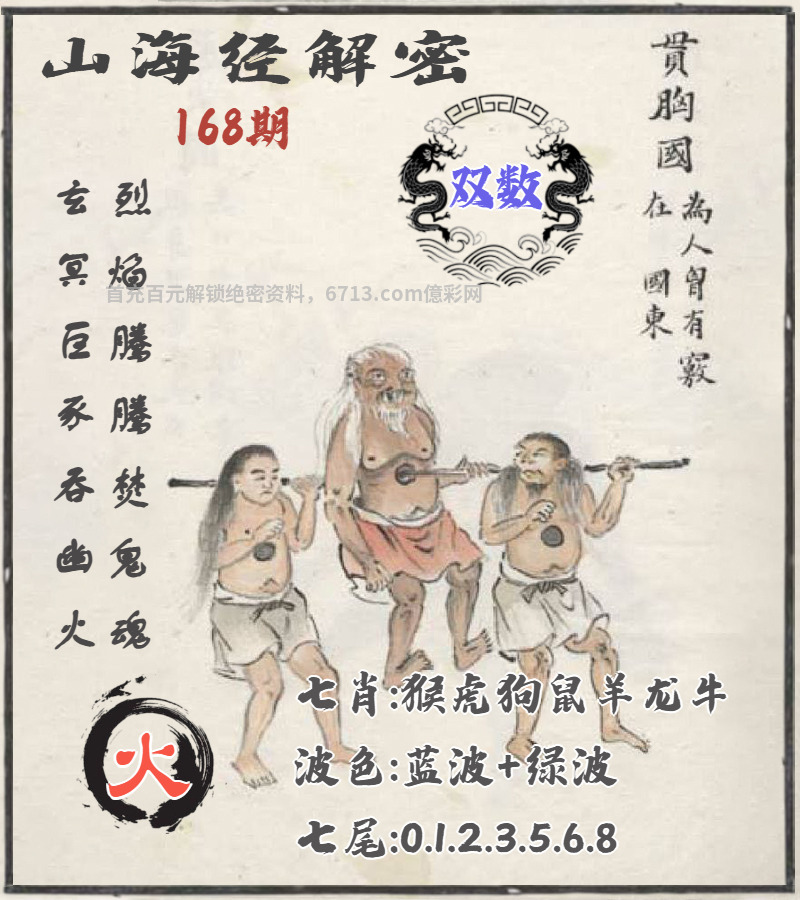 山海经解密
168期
双数
贯胸國
為人匈有竅
在 國東
玄冥巨豕吞幽火
烈焰腾腾焚鬼魂
首充百元解锁绝密资料，6713.com億彩网
七肖:猴虎狗鼠羊龙牛
火
波色:蓝波+绿波
七尾:0.1.2.3.5.6.8